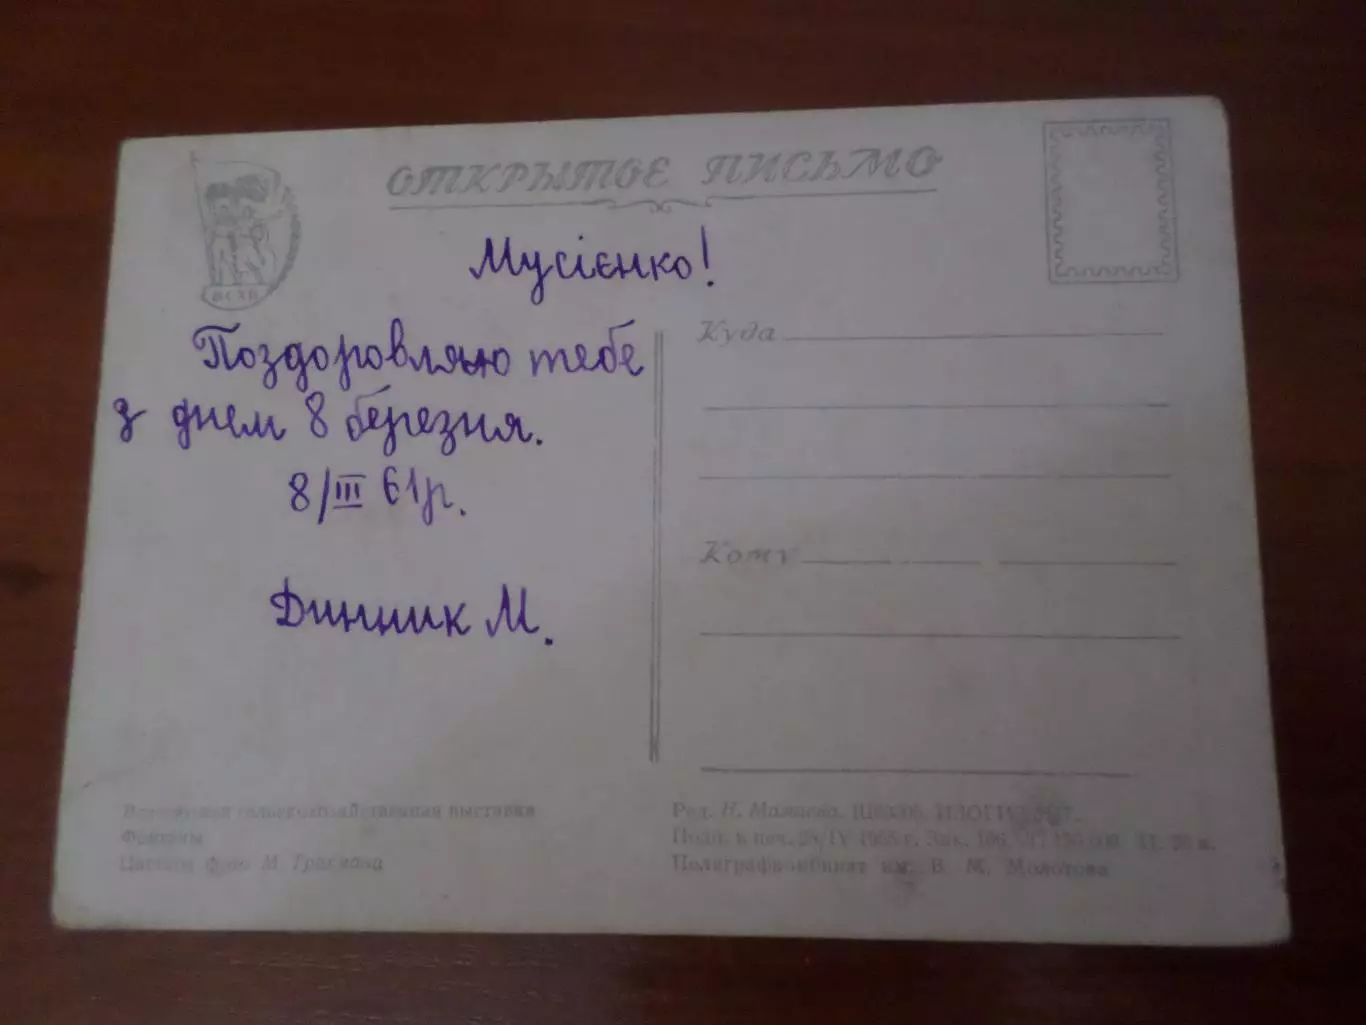 ОТКРЫТОЕ ПИСЬМО
ВСХВ
Мусієнко!
Поздоровляю тебе
з днем 8 березня.
8/III 61р.
Динник М.
Куда
Кому
сельскохозяйственная выставка
Фонтаны
Цветное фото М.
Ред. Н. ИЗОГИЗ
Подп. к печ. 1955 г. Зак.
Полиграфкомбинат им. В. М. Молотова